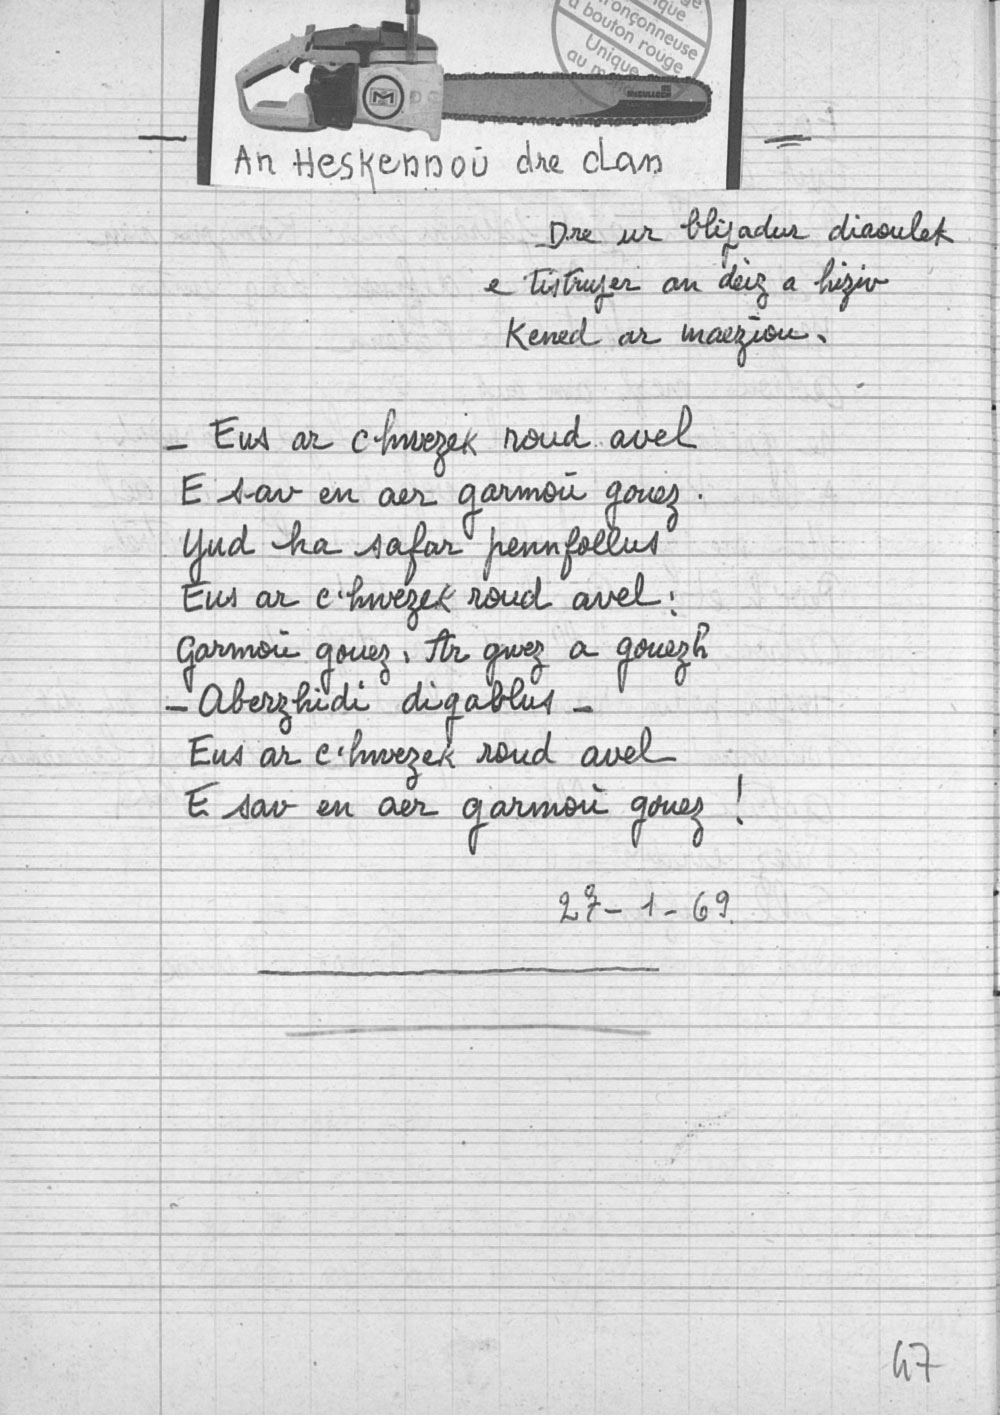 tronçonneuse
à bouton rouge
Unique
McCULLOCH
An Heskennoù dre dan
Dre ur blijadur diaoulek
e tistrujer an deiz a hiziv
Kened ar maeziou.
- Eus ar c'hwezek roud avel
E sav en aer garmoù gouez.
Yud ha safar pennfollus
Eus ar c'hwezek roud avel:
Garmoù gouez. Ar gwez a gouezh
- Aberzhidi digablus -
Eus ar c'hwezek roud avel
E sav en aer garmoù gouez !
27-1-69
47